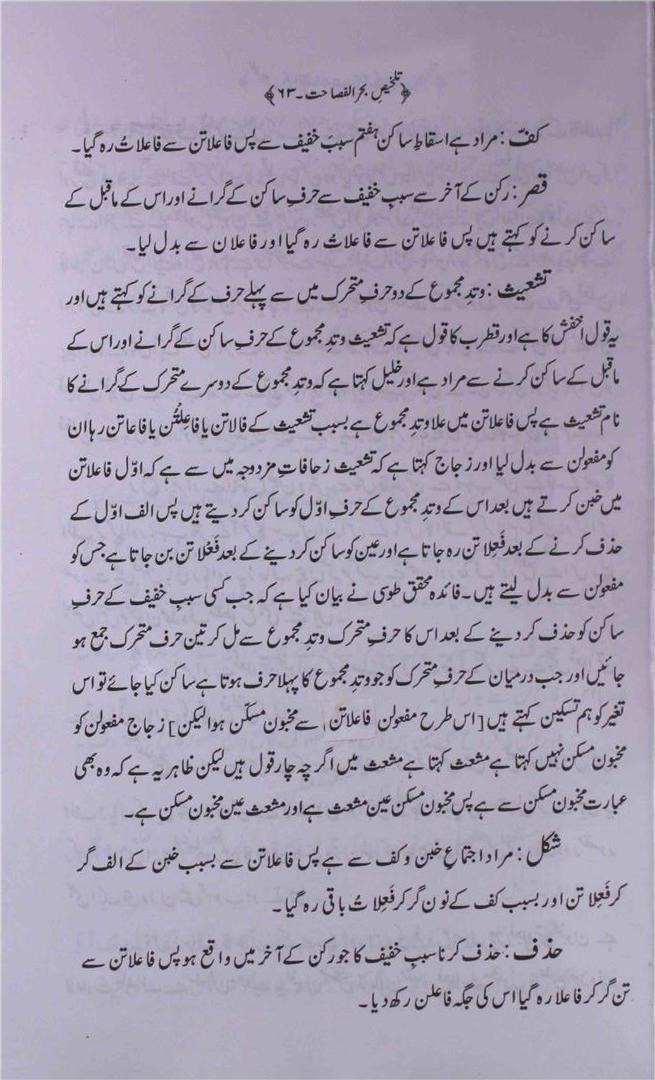 ﴿تلخیص بحر الفصاحت۔۶۳﴾
کفّ : مراد ہے اسقاطِ ساکن ہفتم سببَ خفیف سے پس فاعلاتن سے فاعلاتُ رہ گیا۔
قصر : رکن کے آخر سے سبب خفیف سے حرفِ ساکن کے گرانے اور اس کے ماقبل کے
ساکن کرنے کو کہتے ہیں پس فاعلاتن سے فاعلاتْ رہ گیا اور فاعلان سے بدل لیا۔
تشعیث : وتدِ مجموع کے دو حرفِ متحرک میں سے پہلے حرف کے گرانے کو کہتے ہیں اور
یہ قول اخفش کا ہے اور قطرب کا قول ہے کہ تشعیث وتدِ مجموع کے حرفِ ساکن کے گرانے اور اس کے
ماقبل کے ساکن کرنے سے مراد ہے اور خلیل کہتا ہے کہ وتدِ مجموع کے دوسرے متحرک کے گرانے کا
نام تشعیث ہے پس فاعلاتن میں علا وتدِ مجموع ہے بسبب تشعیث کے فالاتن یا فاعِلْتُن یا فاعاتن رہا ان
کو مفعولن سے بدل لیا اور زجاج کہتا ہے کہ تشعیث زحافاتِ مزدوجہ میں سے ہے کہ اوّل فاعلاتن
میں خبن کرتے ہیں بعد اس کے وتدِ مجموع کے حرفِ اوّل کو ساکن کر دیتے ہیں پس الف اوّل کے
حذف کرنے کے بعد فَعِلاتن رہ جاتا ہے اور عین کو ساکن کر دینے کے بعد فَعْلاتن بن جاتا ہے جس کو
مفعولن سے بدل لیتے ہیں۔ فائدہ محقق طوسی نے بیان کیا ہے کہ جب کسی سببِ خفیف کے حرفِ
ساکن کو حذف کر دینے کے بعد اس کا حرفِ متحرک وتدِ مجموع سے مل کر تین حرف متحرک جمع ہو
جائیں اور جب درمیان کے حرفِ متحرک کو جو وتدِ مجموع کا پہلا حرف ہوتا ہے ساکن کیا جائے تو اس
تغیر کو ہم تسکین کہتے ہیں [اس طرح مفعولن فاعلاتن سے مخبون مسکّن ہوا لیکن] زجاج مفعولن کو
مخبون مسکن نہیں کہتا ہے مشعث کہتا ہے مشعث میں اگرچہ چار قول ہیں لیکن ظاہر یہ ہے کہ وہ بھی
عبارت مخبون مسکن سے ہے پس مخبون مسکن عین مشعث ہے اور مشعث عین مخبون مسکن ہے۔
شکل : مراد اجتماعِ خبن و کف سے ہے پس فاعلاتن سے بسبب خبن کے الف گر
کر فَعِلاتن اور بسبب کف کے نون گر کر فَعِلاتُ باقی رہ گیا۔
حذف : حذف کرنا سببِ خفیف کا جو رکن کے آخر میں واقع ہو پس فاعلاتن سے
تن گر کر فاعلا رہ گیا اس کی جگہ فاعلن رکھ دیا۔